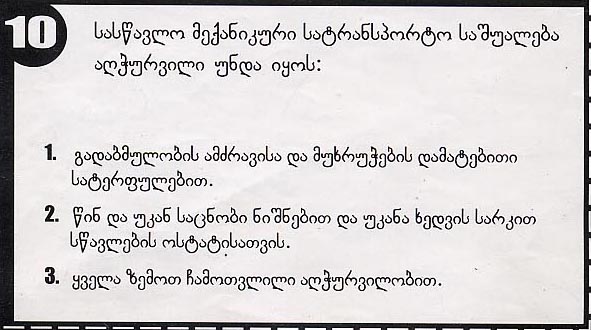 10
სასწავლო მექანიკური სატრანსპორტო საშუალება
აღჭურვილი უნდა იყოს:
1. გადაბმულობის ამძრავისა და მუხრუჭების დამატებითი
სატერფულებით.
2. წინ და უკან საცნობი ნიშნებით და უკანა ხედვის სარკით
სწავლების ოსტატისათვის.
3. ყველა ზემოთ ჩამოთვლილი აღჭურვილობით.